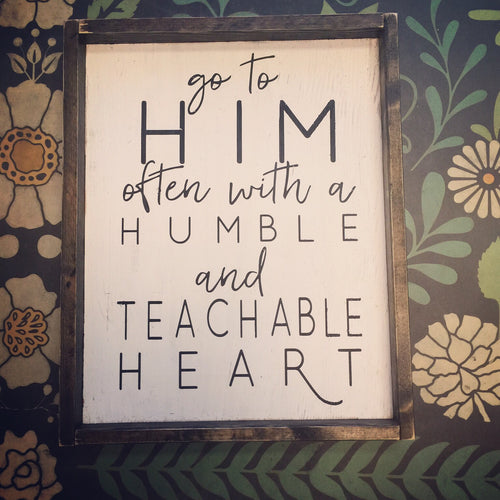 go to
HIM
often with a
HUMBLE
and
TEACHABLE
HEART